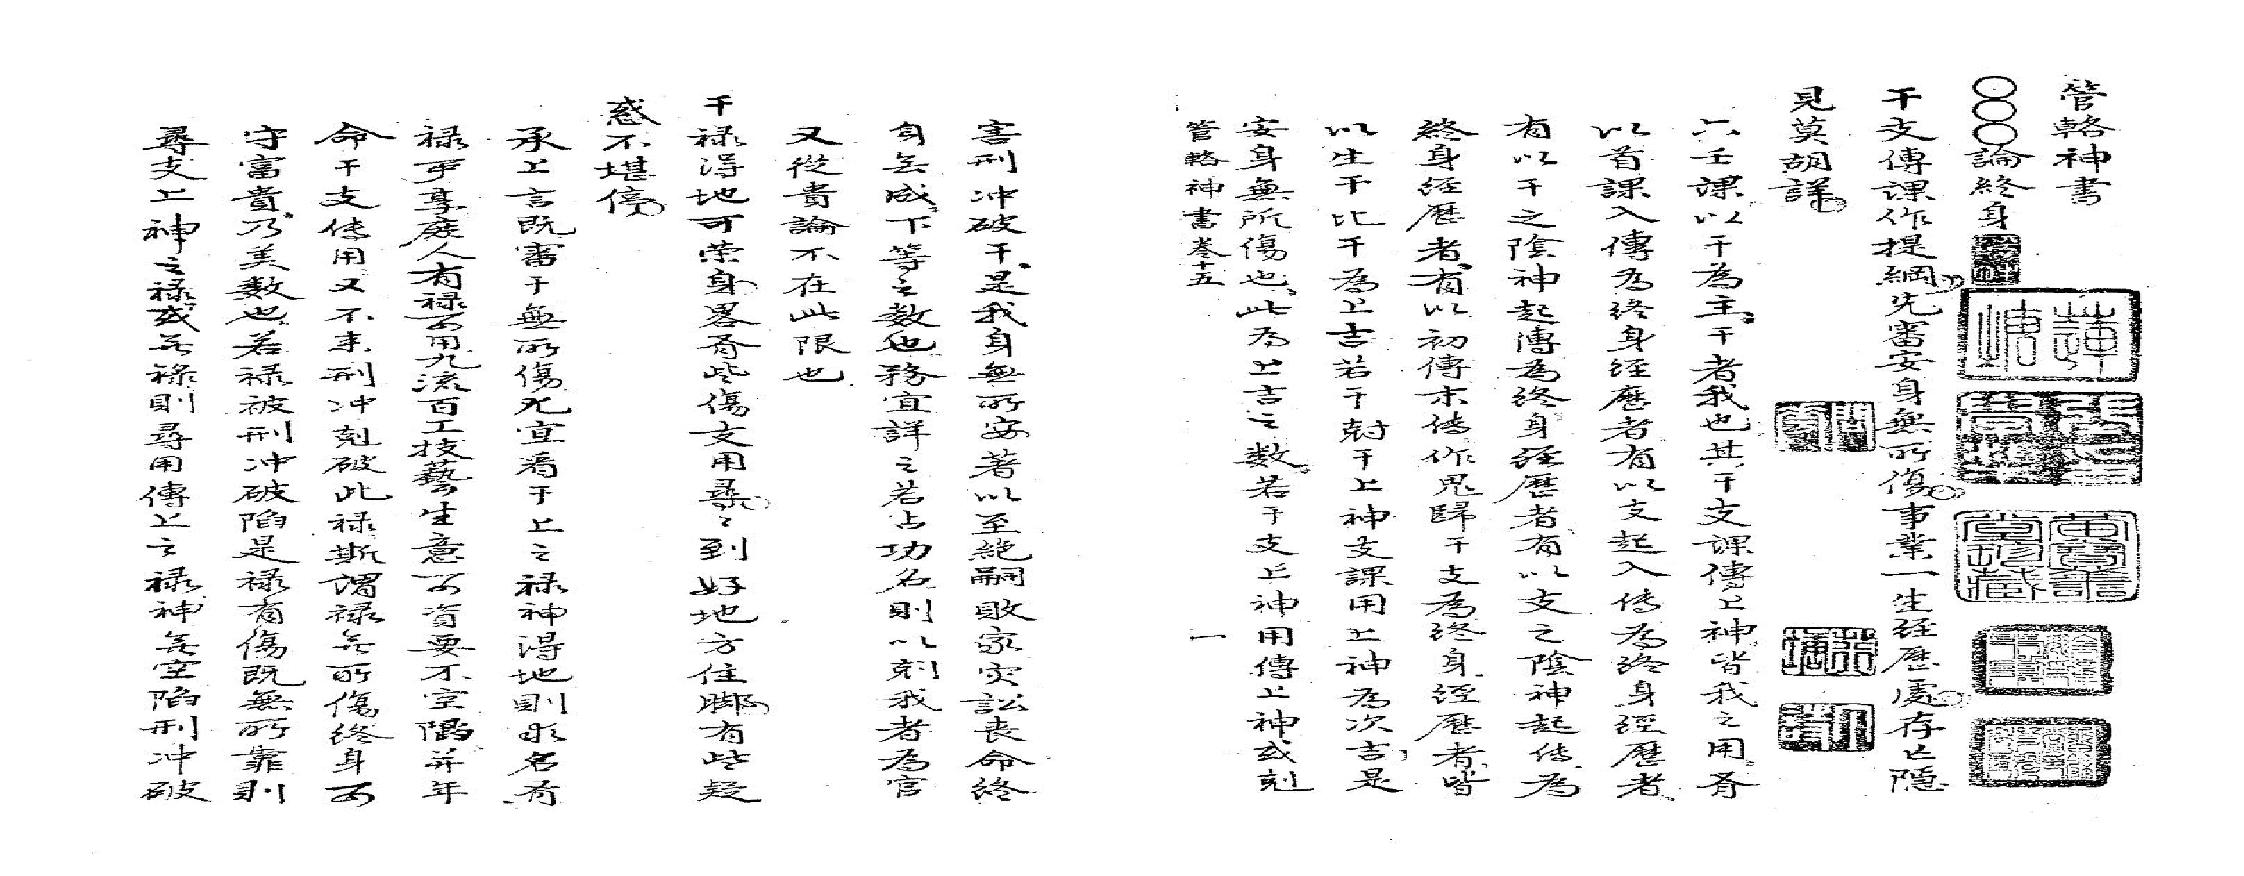 管輅神書
〇〇〇論終身
干支傳課作提綱先審安身無所傷事業一生經歷處存亡隱
見莫胡詳
六壬課以干為主干者我也其干支課傳上神皆我之用有
以首課入傳為終身經歷者有以支起入傳為終身經歷者
有以干之陰神起傳為終身經歷者有以支之陰神起傳為
終身經歷者有以初傳末傳作鬼歸干支為終身經歷者皆
以生干比干為上吉若干尅干上神支課用上神為次吉是
安身無所傷也此為上吉之数若干支上神用傳上神或剋
管輅神書卷十五
一
害刑冲破干是我身無所安著以至絕嗣敗家灾訟丧命終
身无成下等之数也務宜詳之若占功名則以剋我者為官
又從貴論不在此限也
干禄得地可荣身畧有些傷支用尋尋到好地方住脚有些疑
惑不堪停
承上言既審干無所傷尤宜看干上之禄神得地則求名有
禄可享庶人有禄可用九流百工技藝生意可資要不空陷并年
命干支传用又不来刑冲剋破此禄斯谓禄无所傷終身可
守富貴乃美数也若禄被刑冲破陷是禄有傷既無所靠則
尋支上神之禄或无禄則尋用傳上之禄神无空陷刑冲破